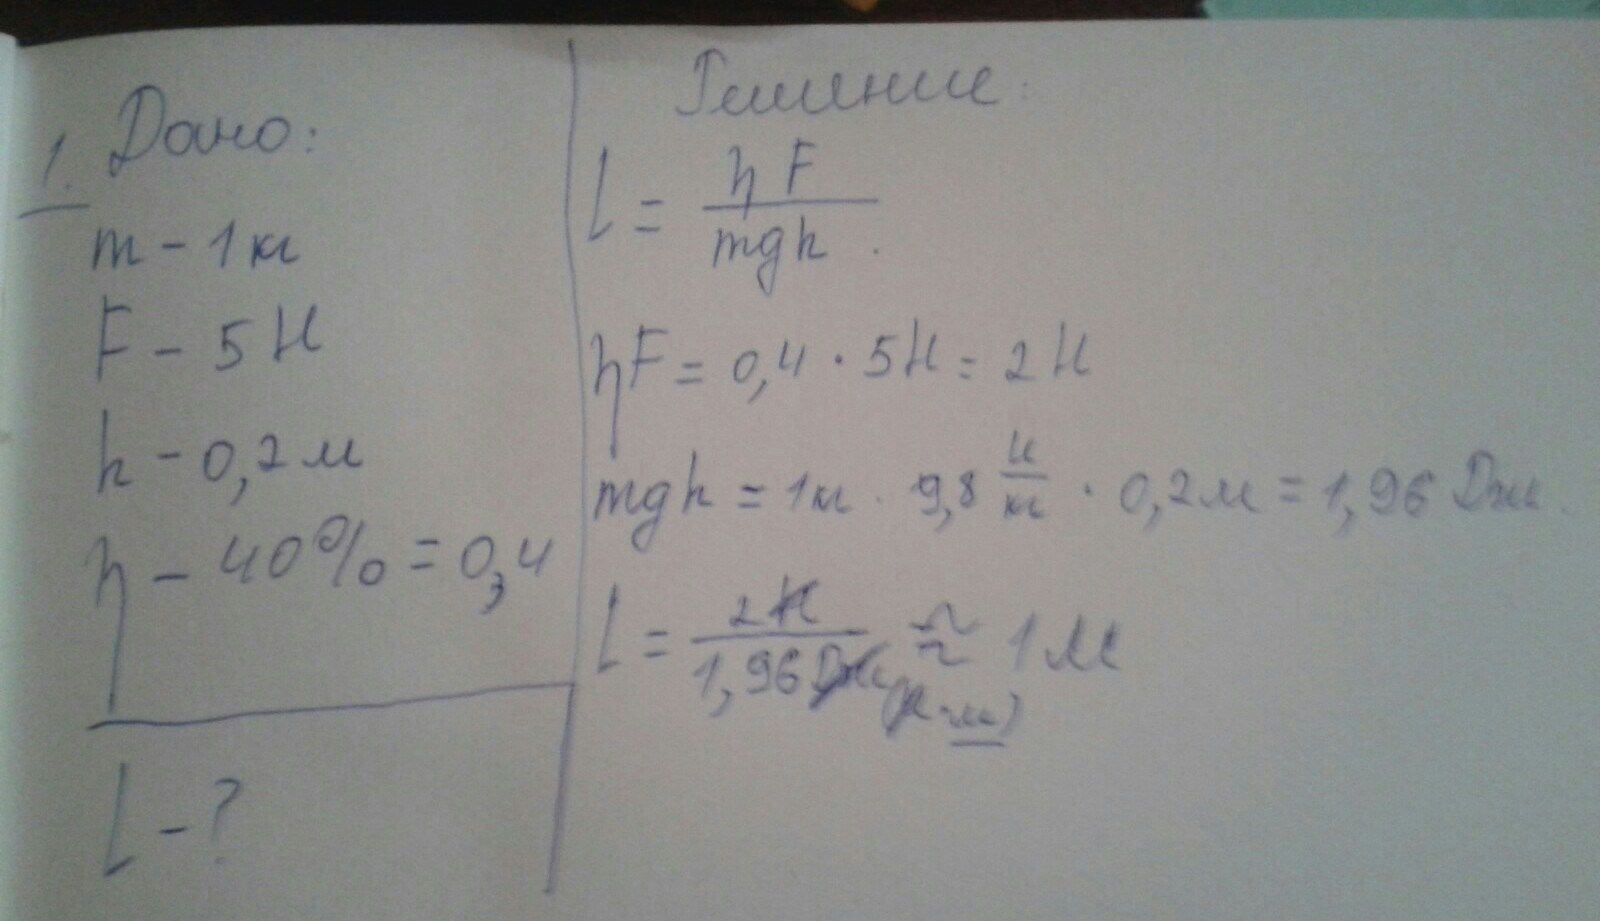 1. Дано:
m - 1 кг
F - 5 Н
h - 0,2 м
η - 40% = 0,4
l - ?
Решение:
l = ηF / mgh.
ηF = 0,4 · 5Н = 2 Н
mgh = 1кг · 9,8 Н/кг · 0,2м = 1,96 Дж.
l = 2Н / 1,96Дж (Н·м) ≈ 1 м